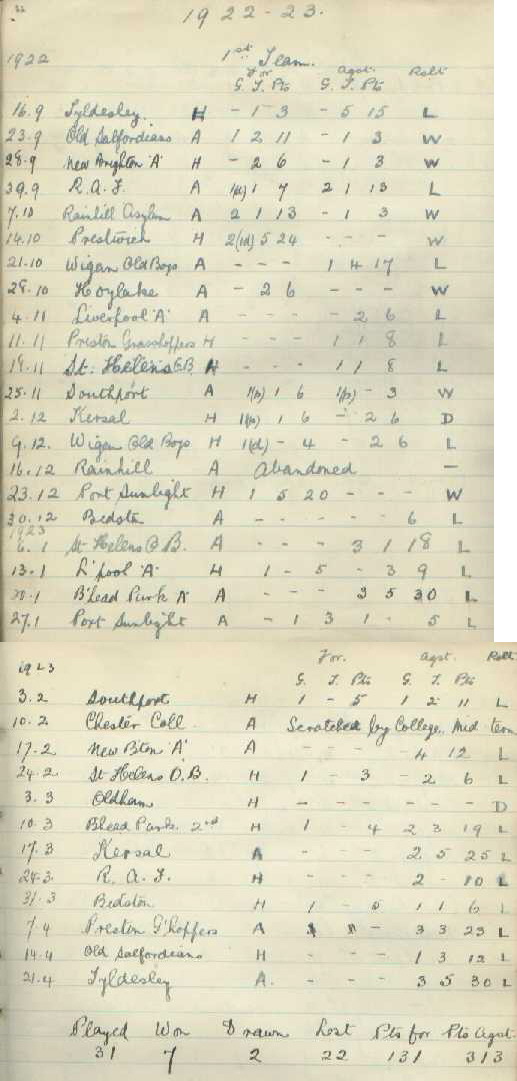 1922-23.
1922 1st Team.
For Agst. Rslt
G. T. Pts G. T. Pts
16.9 Tyldesley. H - 1 3 - 5 15 L
23.9 Old Salfordians A 1 2 11 - 1 3 W
28.9 New Brighton 'A' H - 2 6 - 1 3 W
30.9 R.A.F. A 1(d) 1 7 2 1 13 L
7.10 Rainhill Asylum A 2 1 13 - 1 3 W
14.10 Prestwich H 2(1d) 5 24 - - - W
21.10 Wigan Old Boys A - - - 1 4 17 L
28.10 Hoylake A - 2 6 - - - W
4.11 Liverpool 'A' A - - - - 2 6 L
11.11 Preston Grasshoppers H - - - 1 1 8 L
18.11 St. Helens O.B. H - - - 1 1 8 L
25.11 Southport A 1(p) 1 6 1(p) - 3 W
2.12 Kersal H 1(p) 1 6 - 2 6 D
9.12. Wigan Old Boys H 1(d) - 4 - 2 6 L
16.12 Rainhill A Abandoned -
23.12 Port Sunlight H 1 5 20 - - - W
30.12 Bedston A - - - - 6 L
1923
6.1 St Helens O B. A - - - 3 1 18 L
13.1 L'pool 'A' H 1 - 5 - 3 9 L
20.1 B'head Park 'A' A - - - 3 5 30 L
27.1 Port Sunlight A - 1 3 1 - 5 L
1923 For. agst. Rslt
G. T. Pts G. T. Pts
3.2 Southport H 1 - 5 1 2 11 L
10.2 Chester Coll. A Scratched by College, Mid term
17.2 New Bton 'A' A - - - - 4 12 L
24.2 St Helens O.B. H 1 - 3 - 2 6 L
3.3 Oldham H - - - - - - D
10.3 Bhead Park. 2nd H 1 - 4 2 3 19 L
17.3 Kersal A - - - 2 5 25 L
24.3 R.A.F. H - - - 2 - 10 L
31.3 Bedston H 1 - 5 1 1 6 L
7.4 Preston G'hoppers A - - 3 3 23 L
14.4 Old Salfordians H - - - 1 3 12 L
21.4 Tyldesley A. - - - 3 5 30 L
Played Won Drawn Lost Pts for Pts Agnst.
31 7 2 22 131 313